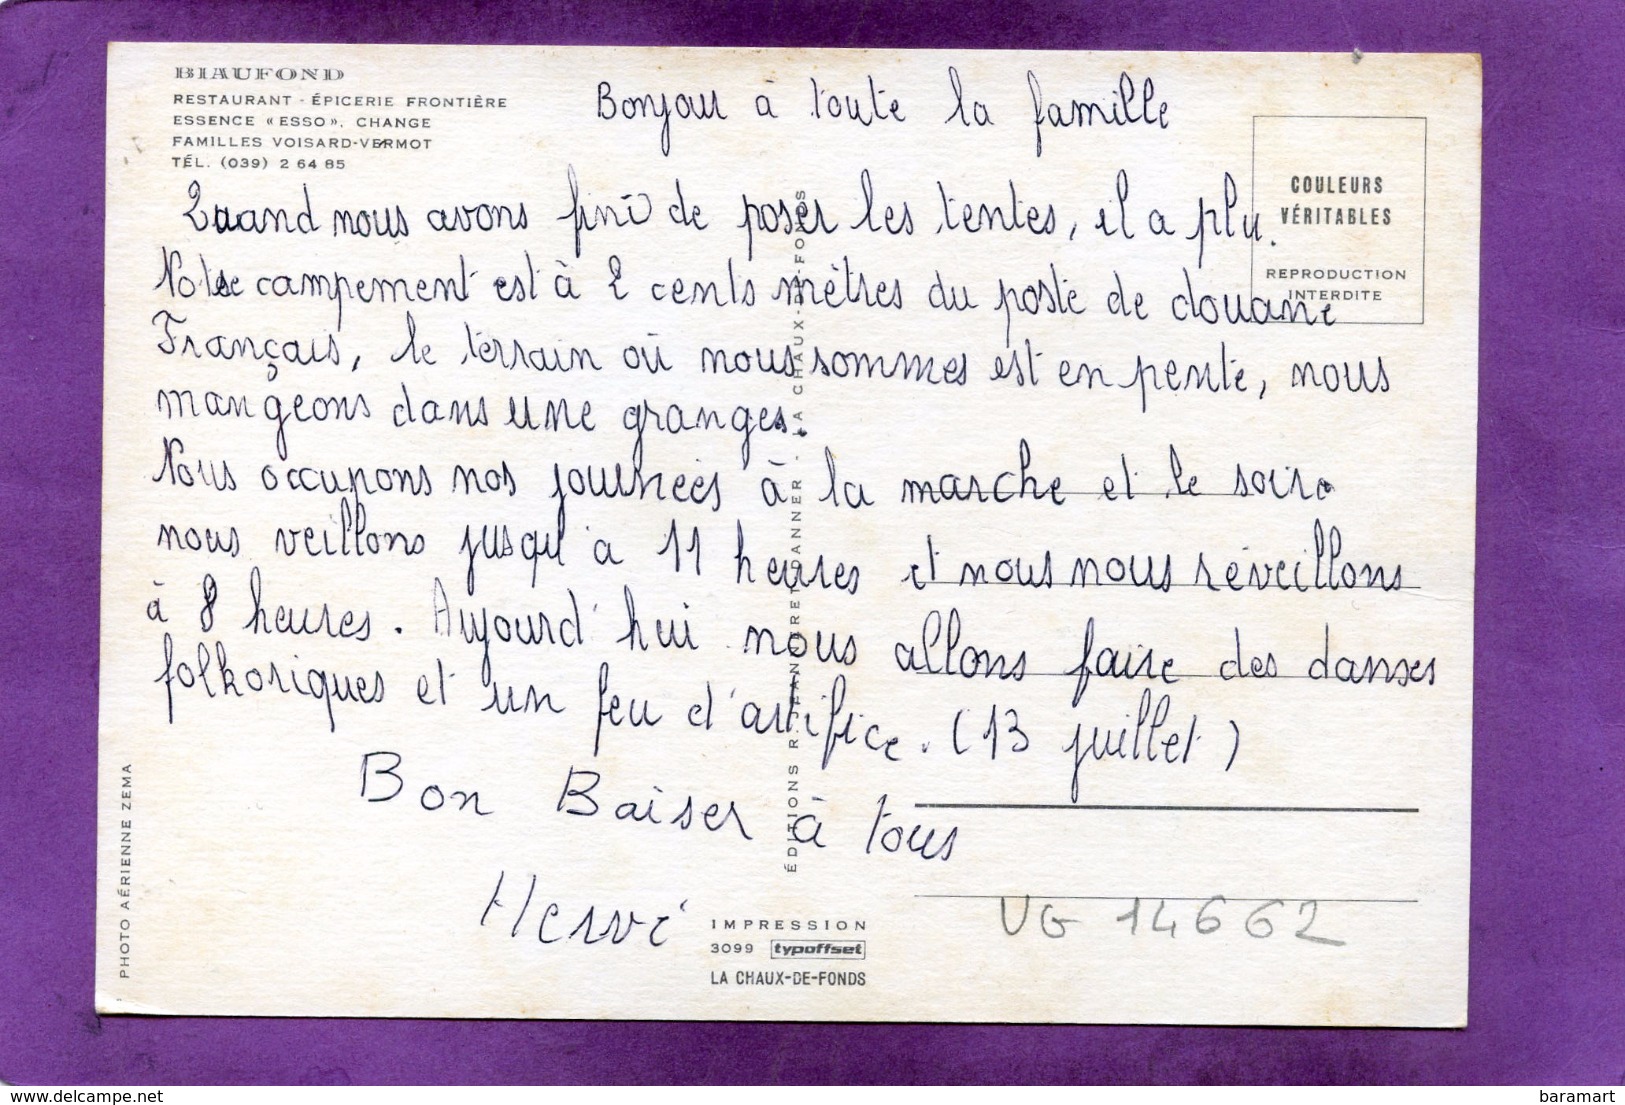 BIAUFOND
RESTAURANT - ÉPICERIE FRONTIÈRE
ESSENCE «ESSO», CHANGE
FAMILLES VOISARD-VERMOT
TÉL. (039) 2 64 85
Bonjour à toute la famille
COULEURS
VÉRITABLES
REPRODUCTION
INTERDITE
Quand nous avons fini de poser les tentes, il a plu.
Notre campement est à 2 cents mètres du poste de douane
Français, le terrain où nous sommes est en pente, nous
mangeons dans une granges.
Nous occupons nos journées à la marche et le soire
nous veillons jusqu'à 11 heures et nous nous réveillons
à 8 heures. Aujourd'hui nous allons faire des danses
folkoriques et un feu d'artifice. (13 juillet)
Bon Baiser à tous
Hervé
ÉDITIONS R. JEANNERET-DANNER - LA CHAUX-DE-FONDS
PHOTO AÉRIENNE ZEMA
IMPRESSION
3099 typoffset
LA CHAUX-DE-FONDS
VG 14662
delcampe.net
baramart